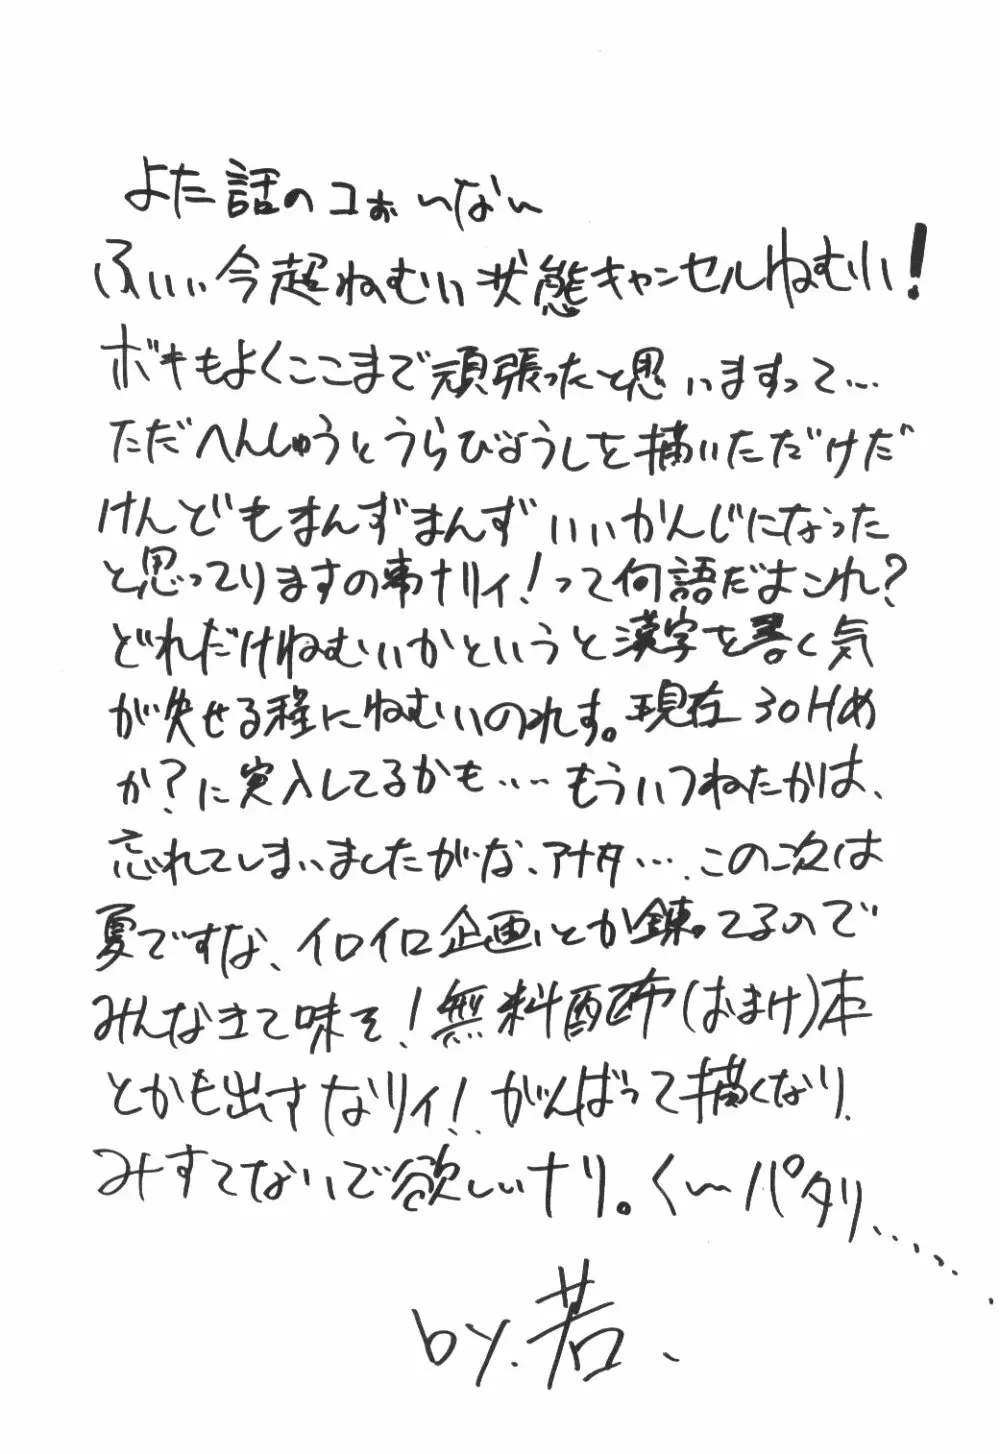 よた話のコぉいない
ふぃぃ今超ねむい状態キャンセルねむい!
ボキもよくここまで頑張ったと思いますって…
ただへんしゅうとうらびょうしを描いただけだ
けんどもまんずまんずいいかんじになった
と思ってりますの事ナリィ!って何語だよこれ?
どれだけねむいかというと漢字を書く気
が失せる程にねむいのれす。現在30Hめ
か?に突入してるかも……もういつねたかは、
忘れてしまいましたがな、アナタ…. この次は
夏ですな、イロイロ企画とか錬ってるので
みんなきて味そ!無料配布(おまけ)本
とかも出すなりィ!がんばって描くなり.
みすてないで欲しいナリ。く〜パタリ.......
by.若.